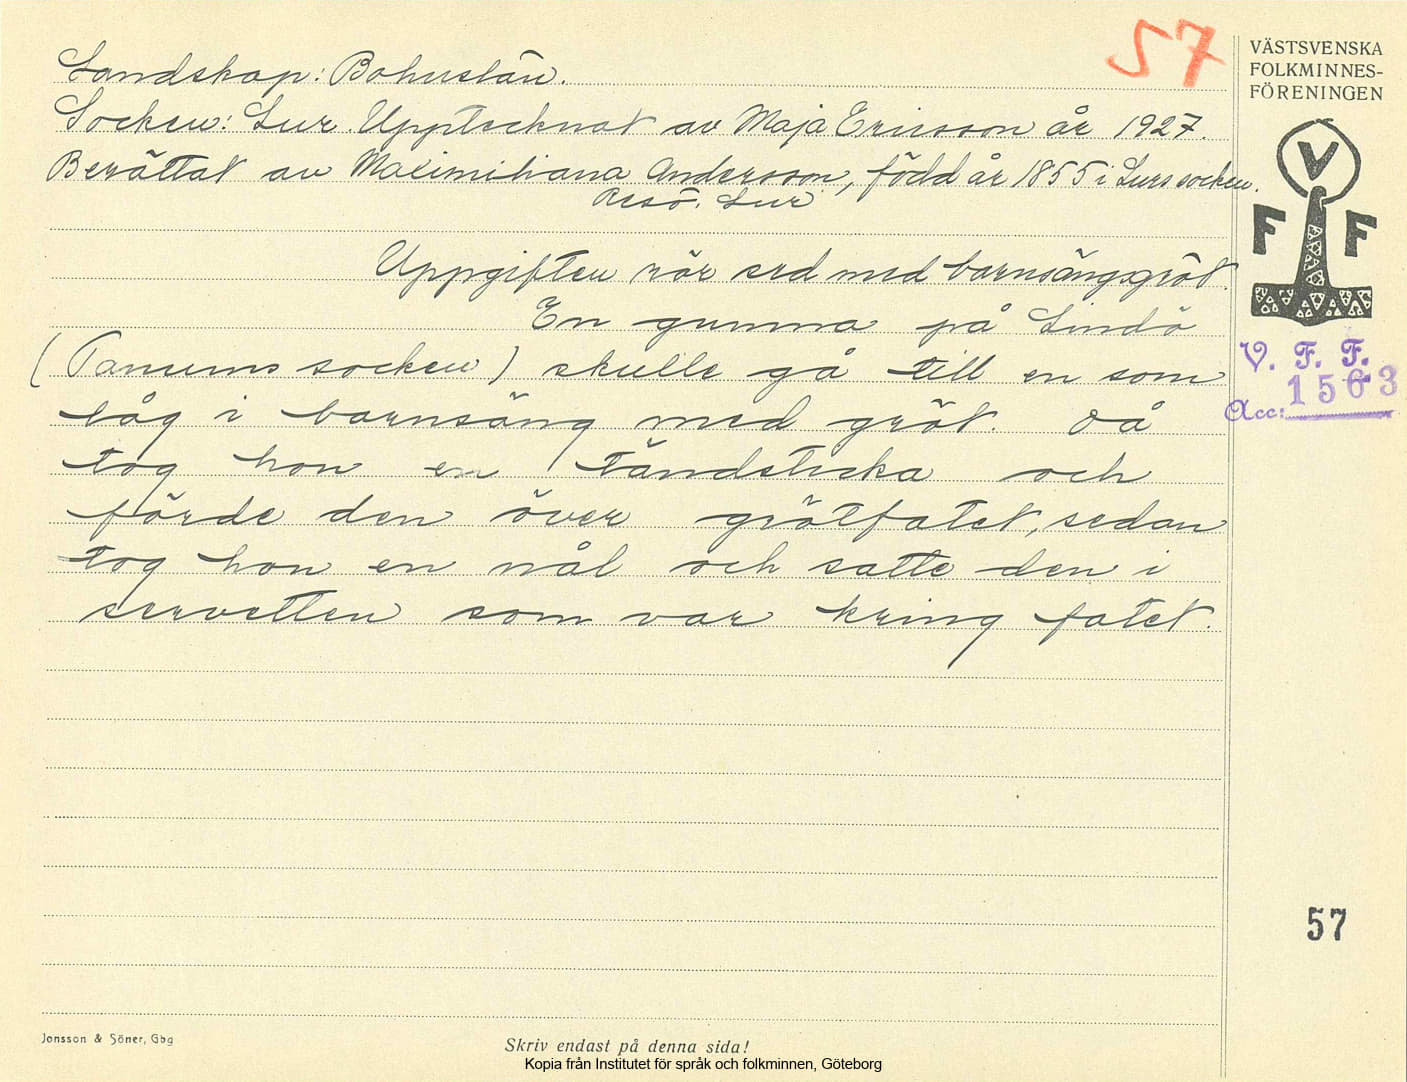 57
VÄSTSVENSKA
FOLKMINNES-
FÖRENINGEN
Landskap: Bohuslän.
Socken: Lur. Upptecknat av Maja Ericsson år 1927.
Berättat av Maximiliana Andersson, född år 1855 i Lurs socken.
Resö. Lur
V
F F
Uppgiften rör sed med barnsängsgröt.
En gumma på Lindö
(Tanums socken) skulle gå till en som
låg i barnsäng med gröt. Då
tog hon en tändsticka och
förde den över grötfatet, sedan
tog hon en nål och satte den i
servetten som var kring fatet.
V. F. F.
Acc: 1563
57
Jonsson & Söner, Gbg
Skriv endast på denna sida!
Kopia från Institutet för språk och folkminnen, Göteborg